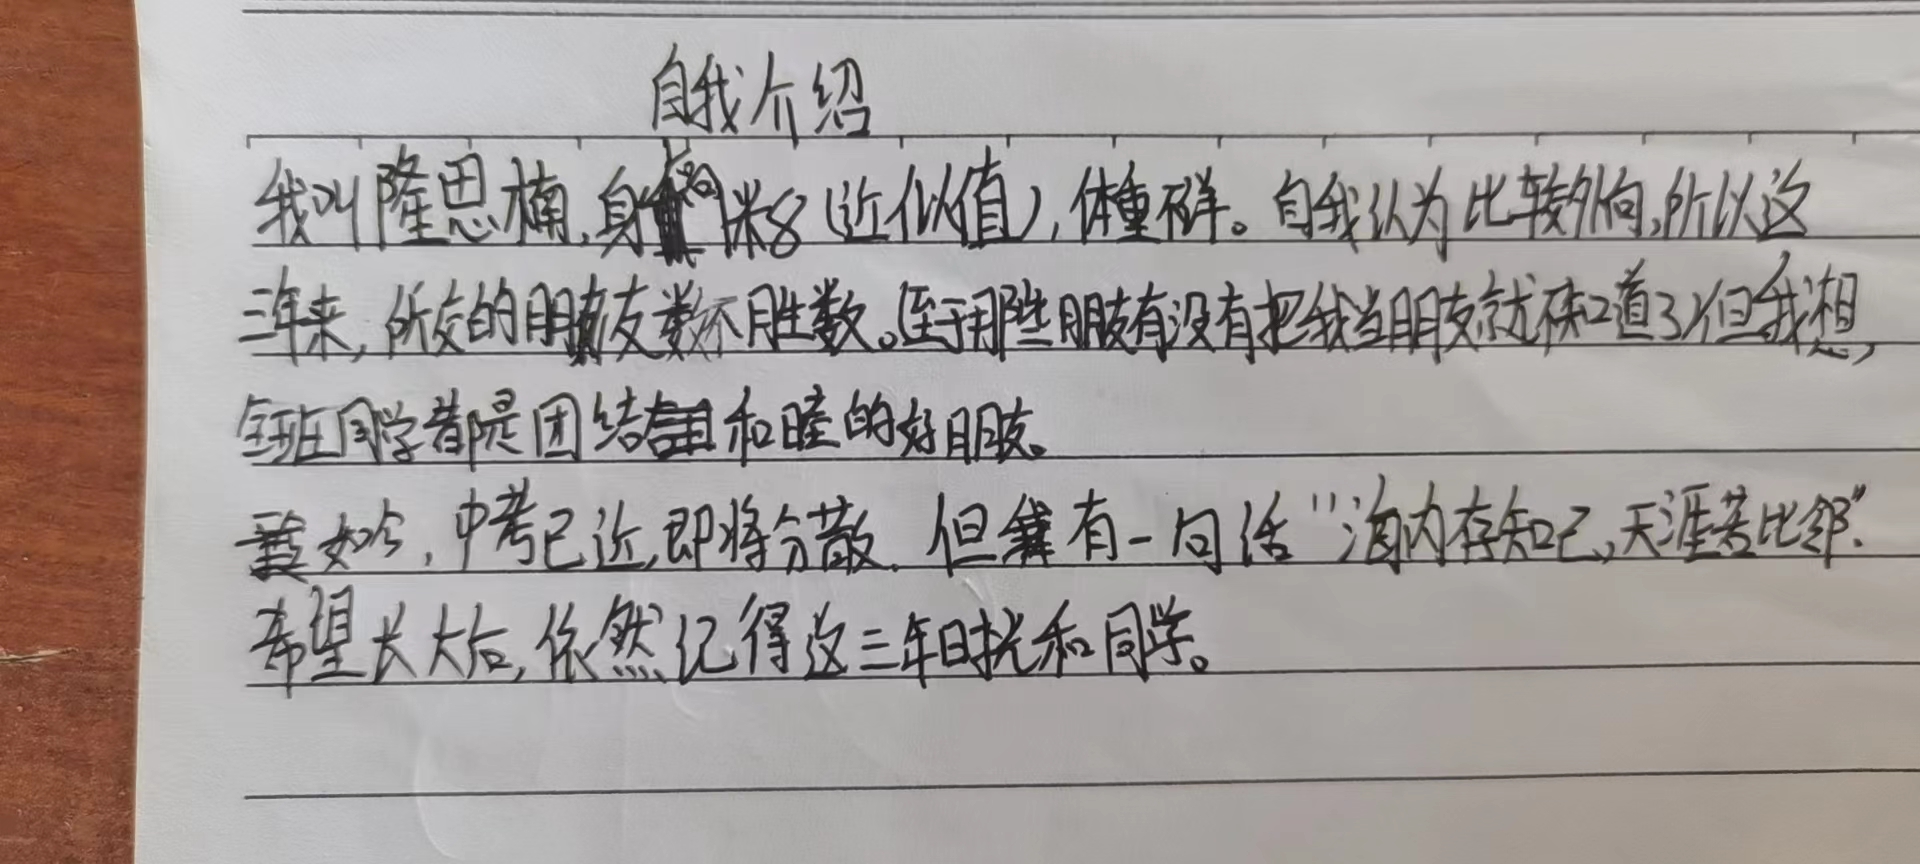 自我介绍
我叫隆思楠,身高1米8(近似值),体重不详。自我认为比较外向,所以这
三年来,所交的朋友数不胜数。至于那些朋友有没有把我当朋友就不知道了,但我想,
全班同学都是团结和睦的好朋友。
如今,中考已近,即将分散.但有一句话"海内存知己,天涯若比邻".
希望长大后,依然记得这三年时光和同学。